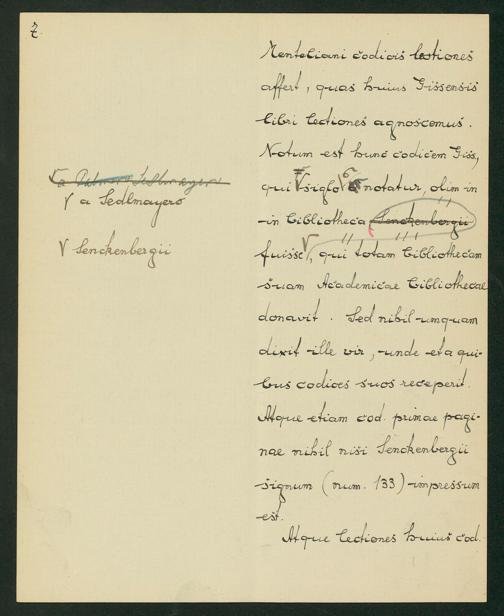 7.
Menteliani codicis lectiones
affert, quas huius Gissensis
libri lectiones agnoscemus.
Notum est hunc codicem Giss,
a Sedlmayero
qui siglo G notatur, olim in
a Sedlmayero
in bibliotheca Senckenbergii
Senckenbergii
fuisse, qui totam bibliothecam
suam Academicae bibliothecae
donavit. Sed nihil umquam
dixit ille vir, unde et a qui-
bus codices suos receperit.
Atque etiam cod. primae pagi-
nae nihil nisi Senckenbergii
signum (num. 133) impressum
est.
Atque lectiones huius cod.